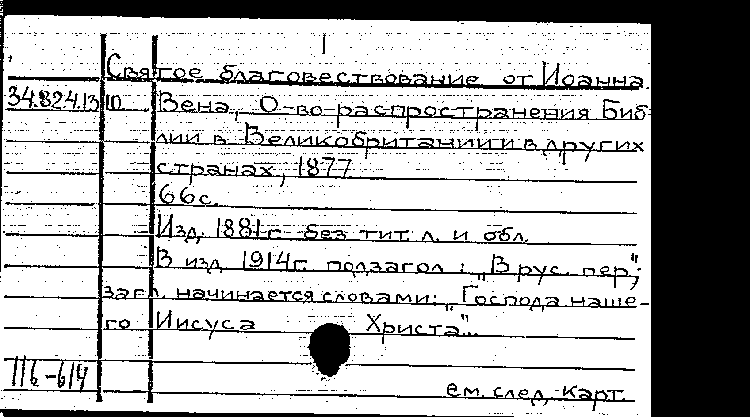 Святое благовествование от Иоанна.
34.824.13 Вена, О-во распространения Биб-
лии в Великобритании и в других
странах, 1877
66с.
Изд. 1881г. без тит. л. и обл.
В изд. 1914г. подзагол: „В рус. пер.";
загл. начинается словами: „Господа наше-
го Иисуса Христа"...
116-614
см. след. карт.